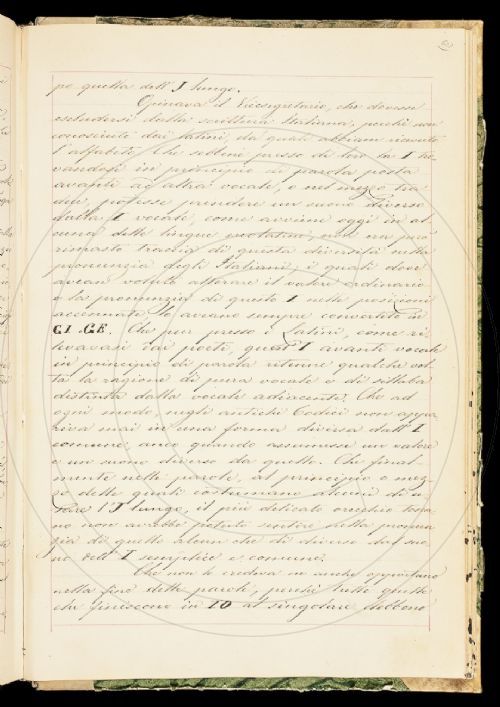 po quella dell'J lungo.
Opinava il Vicesegretario, che dovesse
escludersi dalla scrittura Italiana, perchè non
conosciuto dai latini, da quali abbiam ricevuto
l'alfabeto. Che sebbene presso di loro la I tro
vandosi in principio di parola posta
avanti ad altra vocale, o nel mezzo tra
due, potesse prendere un suono diverso
dalla I vocale, come avviene oggi in al
cuna delle lingue neolatine, non era però
rimasto traccia di questa diversità nella
pronunzia degli Italiani, i quali dove
avean voluto alterare il valore ordinario
e la pronunzia di questo I nelle posizioni
accennate, lo aveano sempre convertito in
GI. GE. Che pur presso i Latini, come ri
levavasi dai poeti, quest'I avanti vocale
in principio di parola ritenne qualche vol
ta la ragione di pura vocale e di sillaba
distinta dalla vocale adiacente. Che ad
ogni modo negli antichi Codici non appa
riva mai in una forma diversa dall'I
comune, anco quando assumesse un valore
e un suono diverso da quello. Che final-
mente nelle parole, al principio o mez-
zo delle quali costumano alcuni di u-
sare l'J lungo, il più delicato orecchio tosca
no non avrebbe potuto sentire nella pronun
zia di quello alcun che di diverso dal suo
no dell'I semplice e comune.
Che non lo credeva in anche opportuno
nella fine delle parole, perchè tutte quelle
che finiscono in IO al singolare debbono